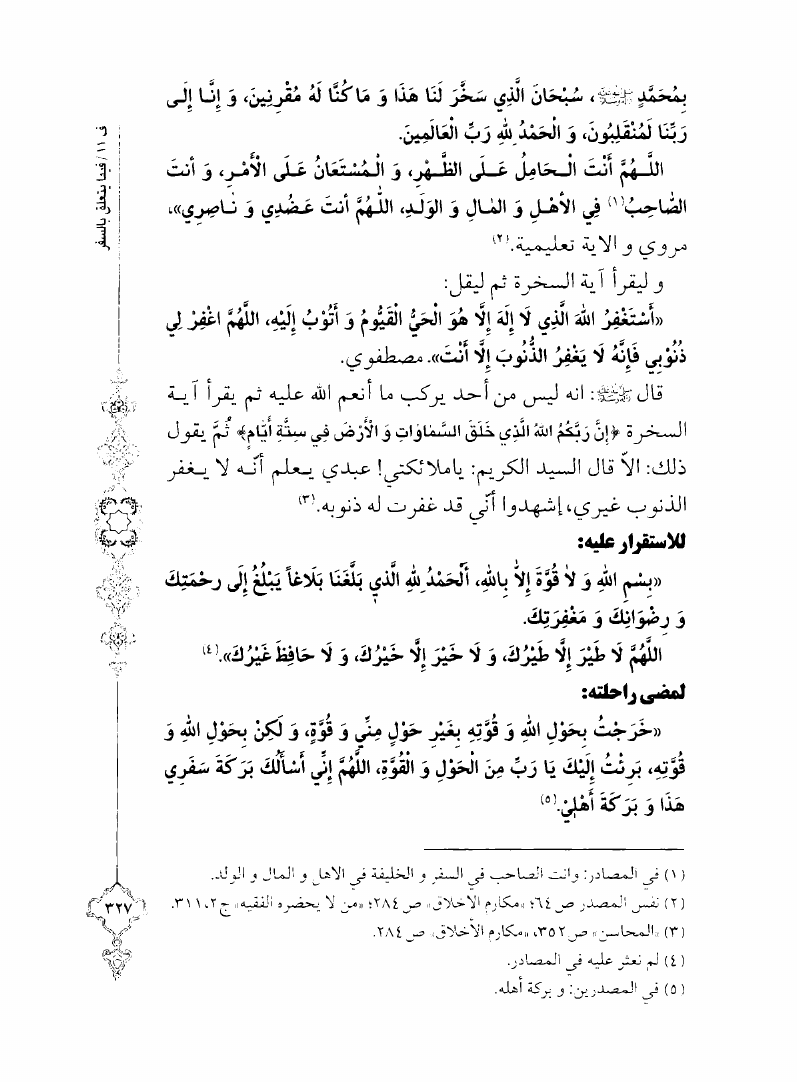 بِمُحَمَّدٍ ﷺ، سُبْحَانَ الَّذِي سَخَّرَ لَنَا هَذَا وَ مَا كُنَّا لَهُ مُقْرِنِينَ، وَ إِنَّا إِلَى
رَبِّنَا لَمُنْقَلِبُونَ، وَ الْحَمْدُ لِلهِ رَبِّ الْعَالَمِينَ.
اللَّهُمَّ أَنْتَ الْحَامِلُ عَلَى الظَّهْرِ، وَ الْمُسْتَعَانُ عَلَى الْأَمْرِ، وَ أنتَ
الصَّاحِبُ(١) فِي الأهْلِ وَ المَالِ وَ الوَلَدِ، اللَّهُمَّ أنتَ عَضُدِي وَ نَاصِرِي»،
مروي و الاية تعليمية.(٢)
و ليقرأ آية السخرة ثم ليقل:
«أَسْتَغْفِرُ اللهَ الَّذِي لَا إِلَهَ إِلَّا هُوَ الْحَيُّ الْقَيُّومُ وَ أَتُوْبُ إِلَيْهِ، اللَّهُمَّ اغْفِرْ لِي
ذُنُوْبِي فَإِنَّهُ لَا يَغْفِرُ الذُّنُوبَ إِلَّا أَنْتَ». مصطفوي.
قال ﷺ: انه ليس من أحد يركب ما أنعم الله عليه ثم يقرأ آية
السخرة ﴿إِنَّ رَبَّكُمُ اللهُ الَّذِي خَلَقَ السَّمَاوَاتِ وَ الْأَرْضَ فِي سِتَّةِ أَيَّامٍ﴾ ثُمَّ يقول
ذلك: الاّ قال السيد الكريم: ياملائكتي! عبدي يعلم أنّه لا يغفر
الذنوب غيري، إشهدوا أنّي قد غفرت له ذنوبه.(٣)
للاستقرار عليه:
«بِسْمِ اللهِ وَ لاَ قُوَّةَ إِلاَّ بِاللهِ، أَلْحَمْدُ لِلهِ الَّذي بَلَّغَنَا بَلَاغاً يَبْلُغُ إِلَى رحْمَتِكَ
وَ رِضْوَانِكَ وَ مَغْفِرَتِكَ.
اللَّهُمَّ لَا طَيْرَ إِلَّا طَيْرُكَ، وَ لَا خَيْرَ إِلَّا خَيْرُكَ، وَ لَا حَافِظَ غَيْرُكَ».(٤)
لمضى راحلته:
«خَرَجْتُ بِحَوْلِ اللهِ وَ قُوَّتِهِ بِغَيْرِ حَوْلٍ مِنِّي وَ قُوَّةٍ، وَ لَكِنْ بِحَوْلِ اللهِ وَ
قُوَّتِهِ، بَرِئْتُ إِلَيْكَ يَا رَبِّ مِنَ الْحَوْلِ وَ الْقُوَّةِ، اللَّهُمَّ إِنِّي أَسْأَلُكَ بَرَكَةَ سَفَرِي
هَذَا وَ بَرَكَةَ أَهْلِيْ.(٥)
(١) في المصادر: وانت الصاحب في السفر و الخليفة في الاهل و المال و الولد.
(٢) نفس المصدر ص ٦٤؛ «مكارم الاخلاق» ص ٢٨٤؛ «من لا يحضره الفقيه» ج ٢، ٣١١.
(٣) «المحاسن» ص ٣٥٢، «مكارم الأخلاق» ص ٢٨٤.
(٤) لم نعثر عليه في المصادر.
(٥) في المصدرين: و بركة أهله.
ف ١١ / فيما يتعلق بالسفر
٣٢٧